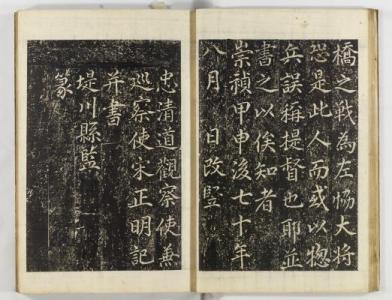 橋之戰為左協大將
恐是此人而或以摠
兵誤稱提督也耶並
書之以俟知者
崇禎甲申後七十年
八月 日改竪
忠清道觀察使兼
巡察使宋正明記
并書
堤川縣監
篆